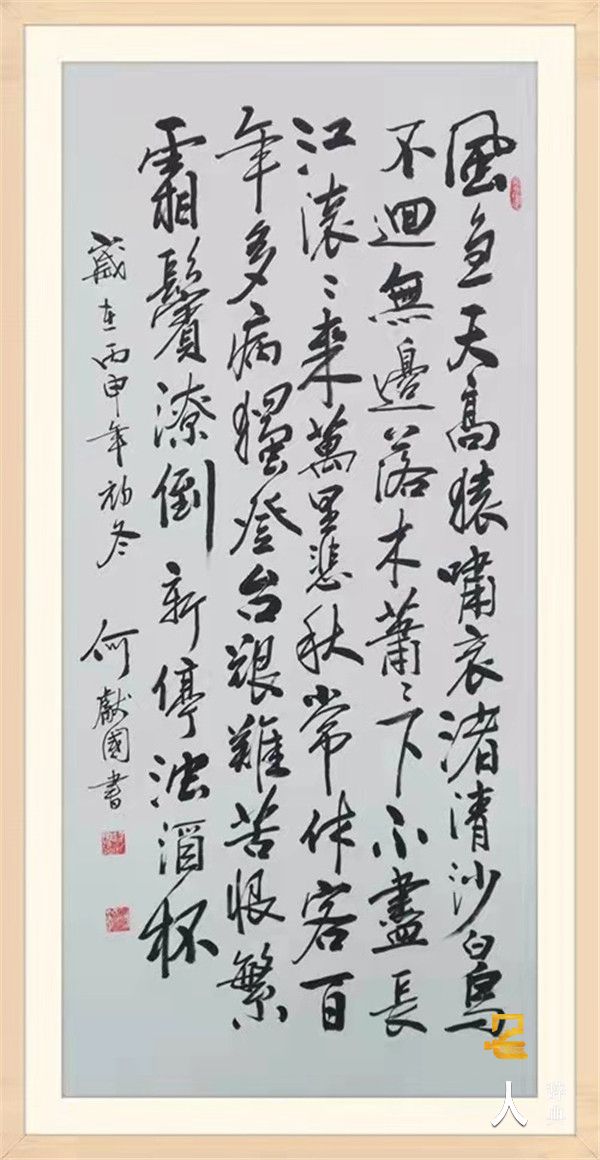 風急天高猿嘯哀渚清沙白鳥
不迴無邊落木蕭〻下不盡長
江滚〻來萬里悲秋常作客百
年多病獨登台艱難苦恨繁
霜鬢潦倒新停浊酒杯
歲在丙申年初冬 何獻國書
名人辞典